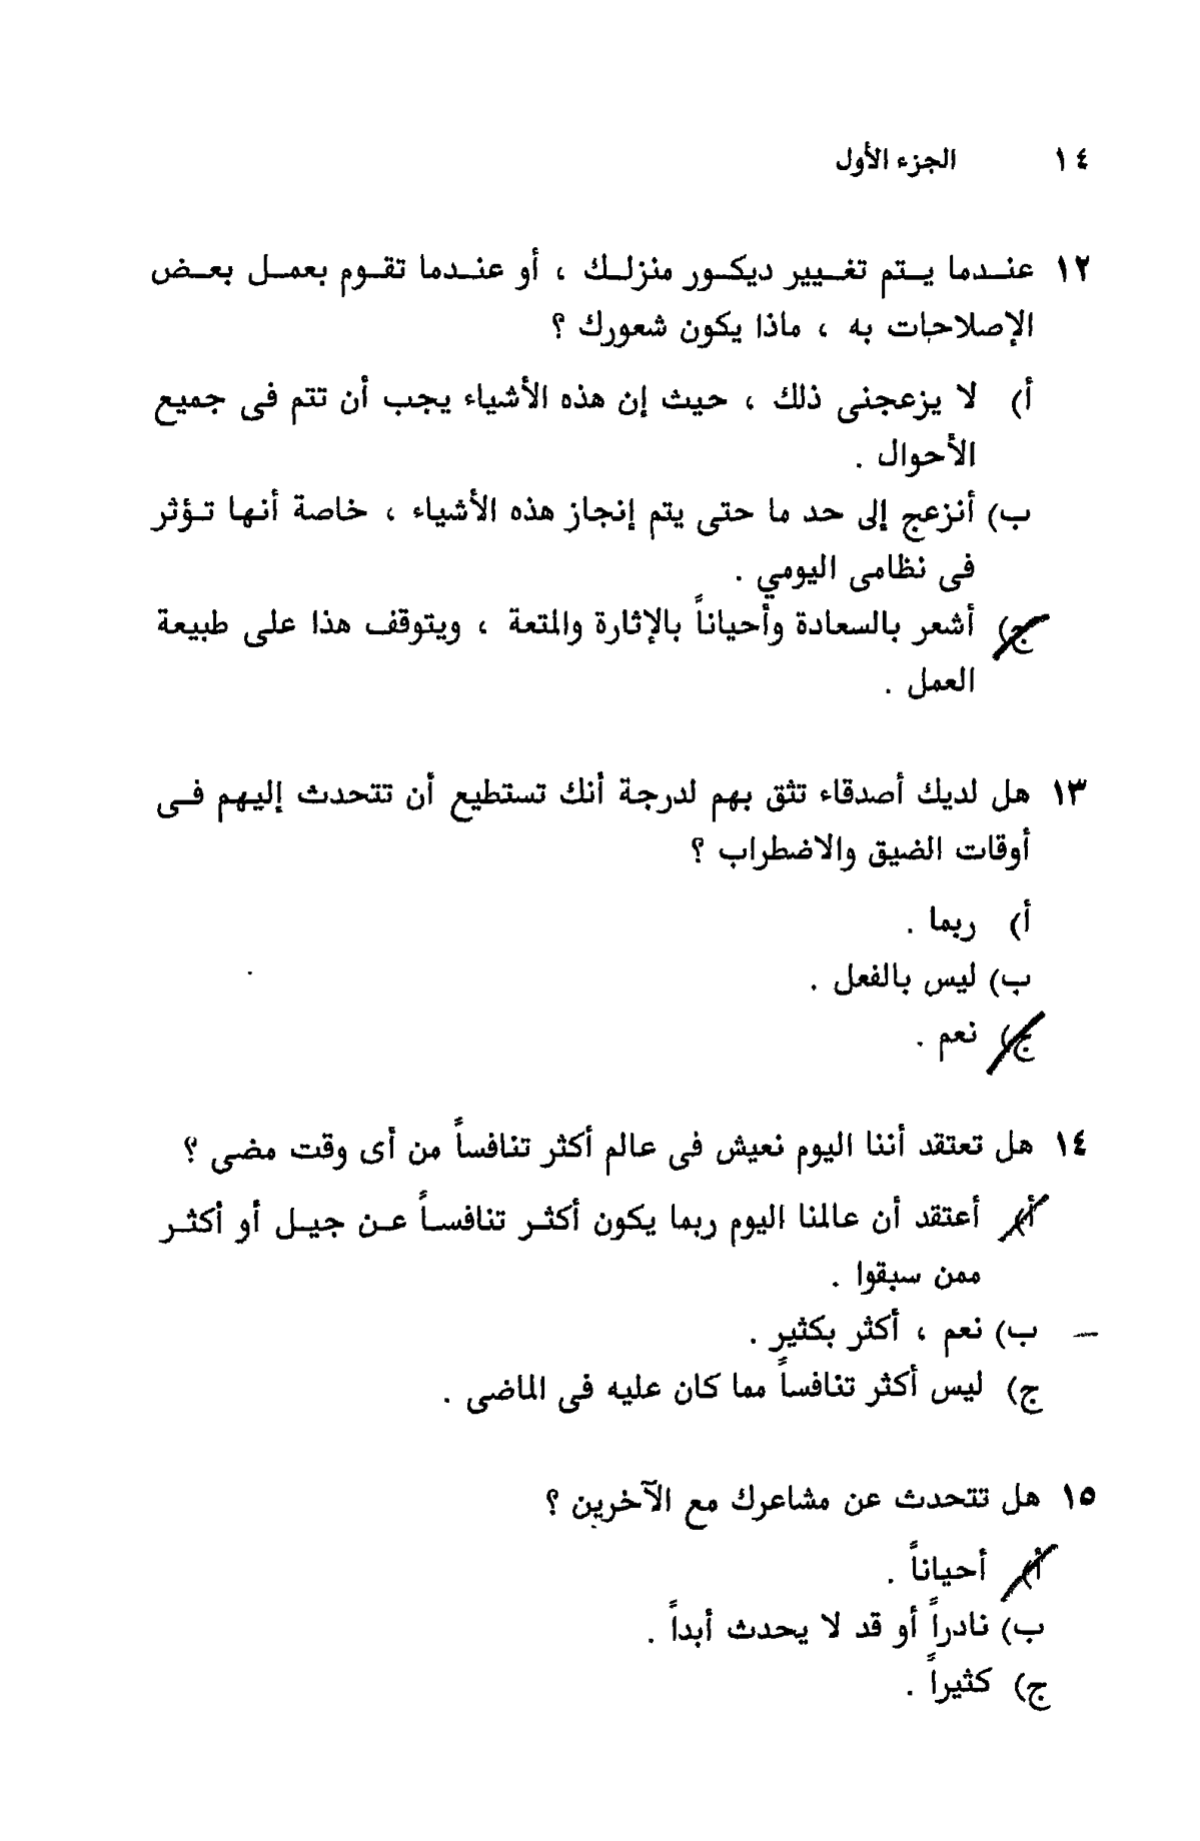 ١٤ الجزء الأول
١٢ عندما يتم تغيير ديكور منزلك ، أو عندما تقوم بعمل بعض
الإصلاحات به ، ماذا يكون شعورك ؟
أ) لا يزعجنى ذلك ، حيث إن هذه الأشياء يجب أن تتم فى جميع
الأحوال .
ب) أنزعج إلى حد ما حتى يتم إنجاز هذه الأشياء ، خاصة أنها تؤثر
فى نظامى اليومي .
ج) أشعر بالسعادة وأحياناً بالإثارة والمتعة ، ويتوقف هذا على طبيعة
العمل .
١٣ هل لديك أصدقاء تثق بهم لدرجة أنك تستطيع أن تتحدث إليهم فى
أوقات الضيق والاضطراب ؟
أ) ربما .
ب) ليس بالفعل .
ج) نعم .
١٤ هل تعتقد أننا اليوم نعيش فى عالم أكثر تنافساً من أى وقت مضى ؟
أ) أعتقد أن عالمنا اليوم ربما يكون أكثر تنافساً عن جيل أو أكثر
ممن سبقوا .
ب) نعم ، أكثر بكثير .
ج) ليس أكثر تنافساً مما كان عليه فى الماضى .
١٥ هل تتحدث عن مشاعرك مع الآخرين ؟
أ) أحياناً .
ب) نادراً أو قد لا يحدث أبداً .
ج) كثيراً .